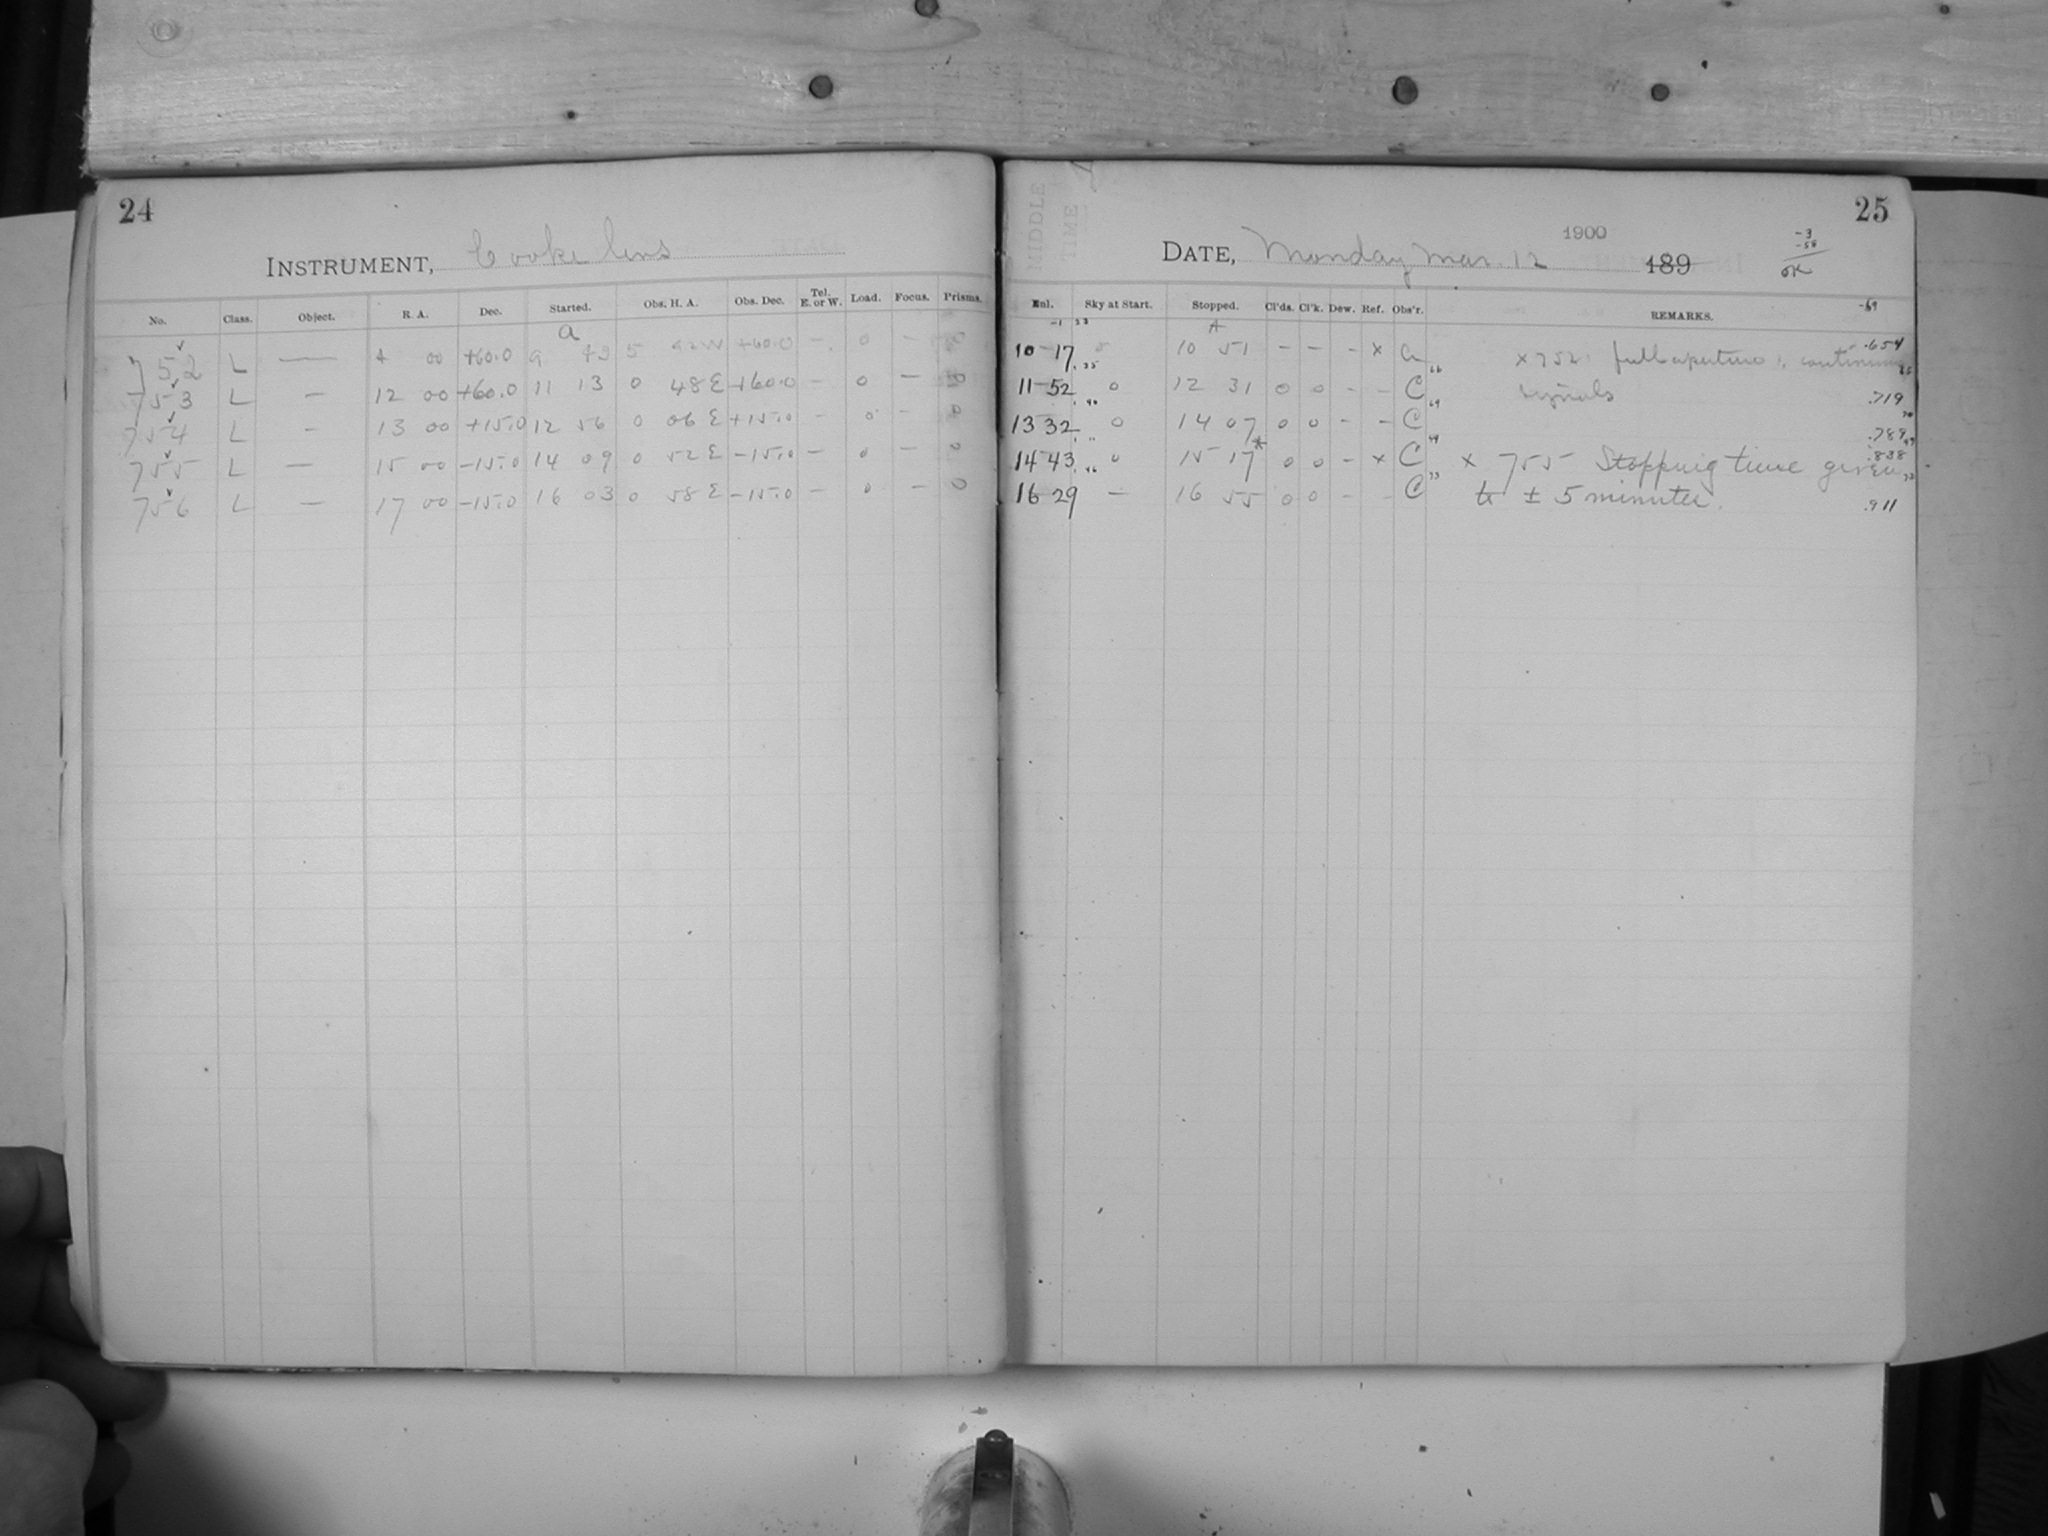 24
INSTRUMENT, Cooke lens
No. Class. Object. R. A. Dec. Started. Obs. H. A. Obs. Dec. Tel. E. or W. Load. Focus. Prisms.
a
752 L — 4 00 +60.0 9 43 5 42W +60.0 - 0 - 0
753 L — 12 00 +60.0 11 13 0 48E +60.0 - 0 - 0
754 L - 13 00 +15.0 12 56 0 06E +15.0 - 0 - 0
755 L — 15 00 -15.0 14 09 0 52E -15.0 - 0 - 0
756 L — 17 00 -15.0 16 03 0 58E -15.0 - 0 - 0
MIDDLE
TIME
25
1900
-3
-58
OK
DATE, Monday Mar. 12 189
Enl. Sky at Start. Stopped. Cl'ds. Cl'k. Dew. Ref. Obs'r. REMARKS.
A
10 17 10 51 - - - x a x 752: full aperture; continuous .654
11 52 0 12 31 0 0 - - C signals .719
13 32 0 14 07 0 0 - - C .789
14 43 0 15 17* 0 0 - x C x 755 Stopping time given .838
16 29 — 16 55 0 0 - - C to ± 5 minutes. .911